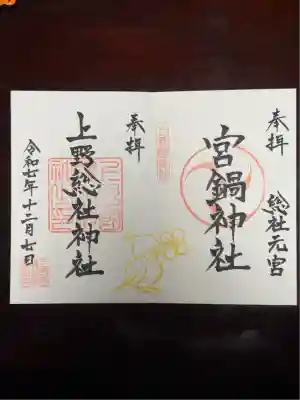 奉拝　総社元宮
宮鍋神社
奉拝
上野総社神社
令和七年十二月七日